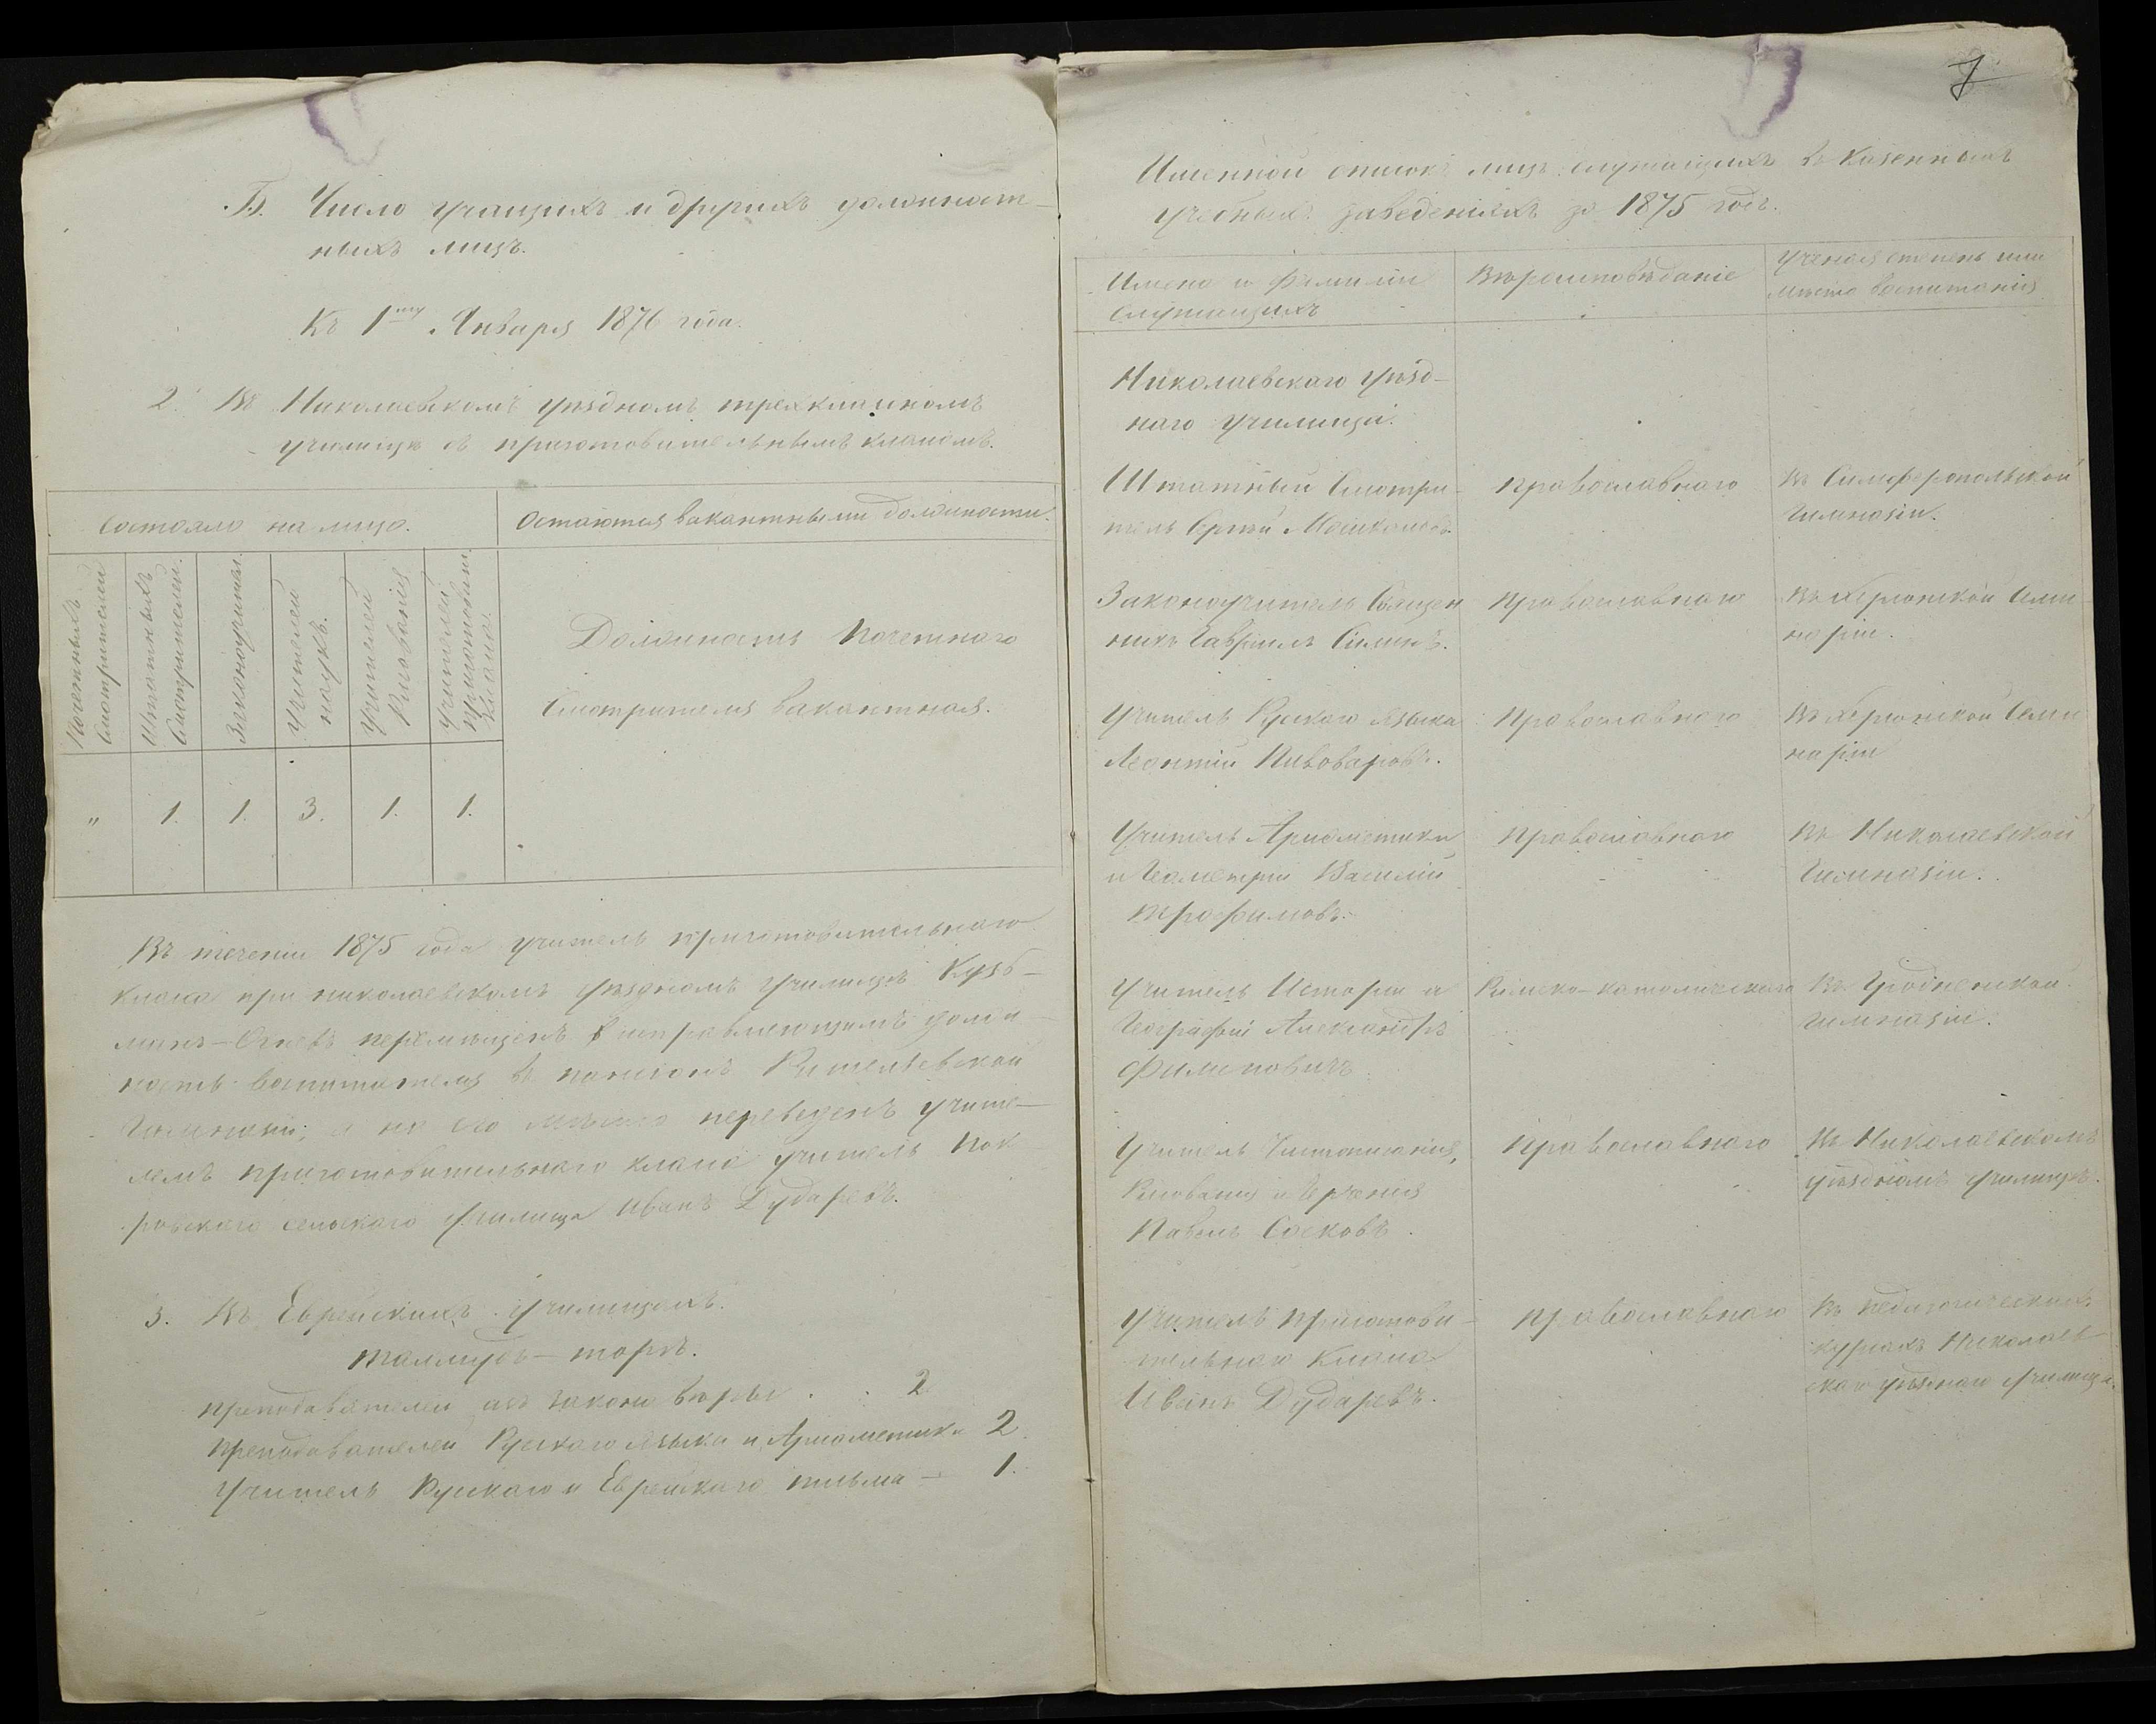 7
Б. Число учащихъ и другихъ должност-
ныхъ лицъ.
Къ 1му Января 1876 года.
2. Въ Николаевскомъ уѣздномъ трехклассномъ
училищѣ съ приготовительнымъ классомъ.
Состояло на лицо.
Остаются вакантными должности.
Почетныхъ
Смотрителей
Штатныхъ
Смотрителей.
Законоучит.
Учителей
наукъ.
Учителей
Рисованія
Учителей
приготовит.
класса.
Должность Почетнаго
Смотрителя вакантная.
" 1. 1. 3. 1. 1.
Въ теченіи 1875 года учитель приготовительнаго
класса при николаевскомъ уѣздномъ училищѣ Кузь-
минъ-Огневъ перемѣщенъ исправляющимъ долж-
ность воспитателя въ пансіонъ Ришельевской
Гимназіи; а на его мѣсто переведенъ учите-
лемъ приготовительнаго класса учитель Пок
ровскаго сельскаго училища Иванъ Дударевъ.
3. Въ Еврейскихъ училищахъ.
талмудъ-торѣ.
преподавателей закона вѣры . . 2
преподавателей Рускаго языка и Ариѳметики 2.
Учитель Рускаго и Еврейскаго письма — 1.
Именной списокъ лицъ служащихъ въ казенныхъ
учебныхъ заведеніяхъ за 1875 годъ.
Имена и фамиліи
служащихъ
Вѣроисповѣданіе
Ученая степень или
мѣсто воспитанія
Николаевскаго уѣзд-
наго училища.
Штатный Смотри-
тель Сергѣй
Православнаго
Въ Симферопольской
Гимназіи.
Законоучитель Священ
никъ Гавріилъ
Православнаго
Въ Херсонской Семи
наріи.
Учитель Рускаго языка
Леонтій Пивоваровъ.
Православнаго
Въ Херсонской Семи
наріи
Учитель Ариѳметики
и Геометріи Василій
Трофимовъ.
Православнаго
Въ Николаевской
Гимназіи.
Учитель Исторіи и
Географіи Александръ
Филиповичъ
Римско-католическаго
Въ Гродненской
гимназіи.
Учитель Чистописанія,
Рисованія и Черченія
Павелъ Сосковъ.
Православнаго
Въ Николаевскомъ
уѣздномъ училищѣ.
Учитель Приготови-
тельнаго Класса
Иванъ Дударевъ.
Православнаго
Въ педагогическихъ
курсахъ Николаев-
скаго уѣзднаго училища.